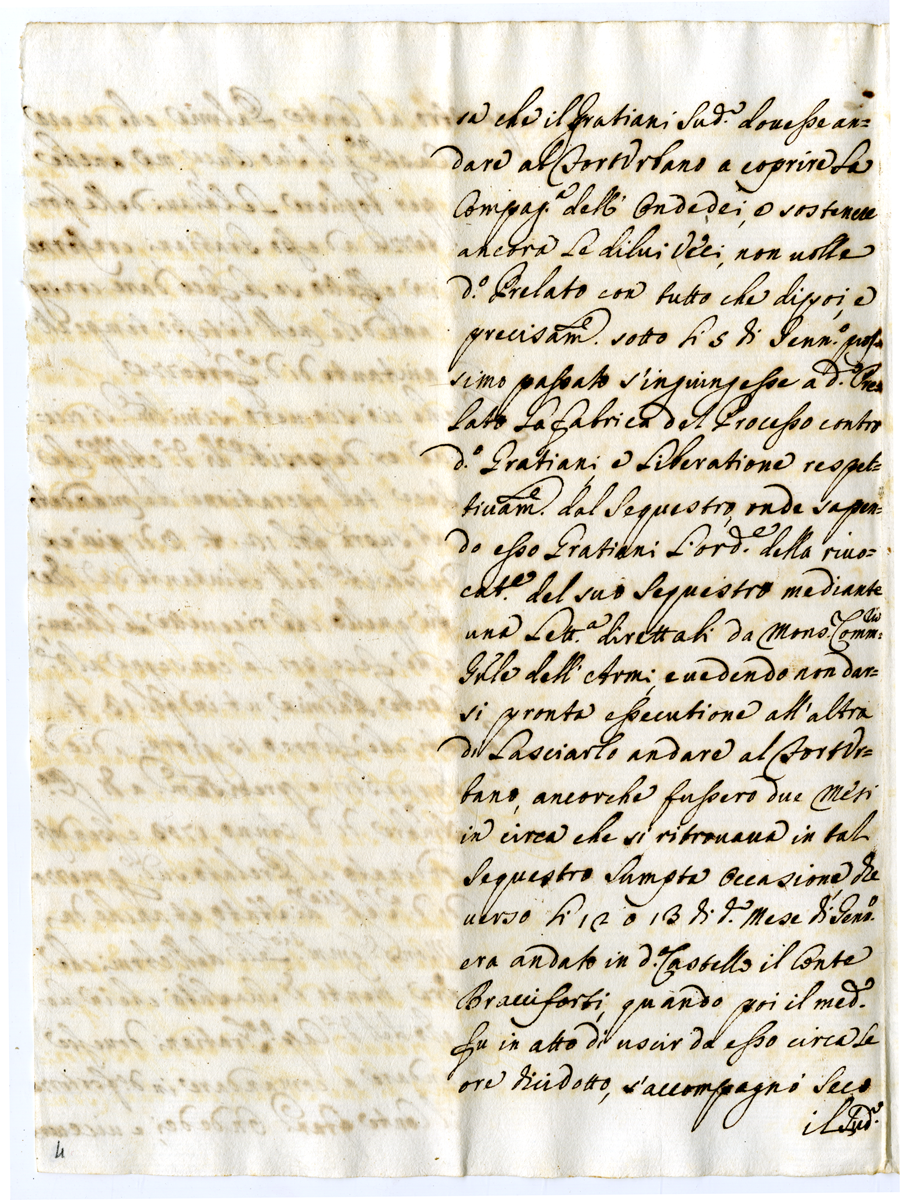 sa che il Gratiani Sud.º douesse an=
dare al FortVrbano a coprire La
Compag.ª dell' Ondedei, e sostenere
ancora Le dilui Veci, non uolle
d.º Prelato con tutto che dipoi, e
precisam.e sotto Li 5 di Genn.º pros=
simo passato s'ingiungesse a d.º Pre=
lato La fabrica del Processo contro
d.º Gratiani e Liberatione respet=
tiuam.e dal Sequestro, onde sapen=
do esso Gratiani L'ord.e della riuo=
cat.e del suo Sequestro mediante
una Lett.ª direttali da Mons. Comm:rio
Gñle dell' Armi, e uedendo non dar=
si pronta essecutione all' altra
di Lasciarlo andare al FortVr=
bano, ancorche fussero due Mesi
in circa che si ritrouaua in tal
Sequestro Sumpta Occasione, che
uerso Li 12 o 13 di d.º Mese di Genn.º
era andato in d.º Castello il Conte
Bracciforti, quando poi il med.º
fu in atto di uscir da esso circa Le
ore dicidotto, s'accompagnò Seco
il Sud.º
4